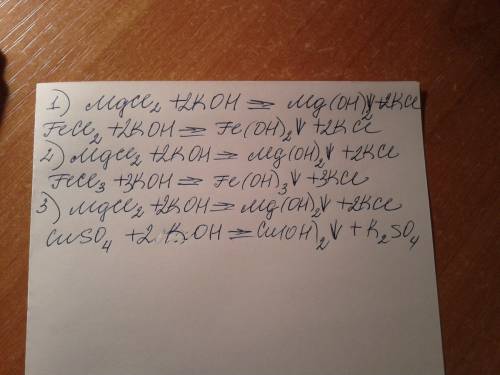 1) MgCl₂ + 2KOH = Mg(OH)₂↓ + 2KCl
FeCl₂ + 2KOH = Fe(OH)₂↓ + 2KCl
2) MgCl₂ + 2KOH → Mg(OH)₂↓ + 2KCl
FeCl₃ + 3KOH = Fe(OH)₃↓ + 3KCl
3) MgCl₂ + 2KOH → Mg(OH)₂↓ + 2KCl
CuSO₄ + 2KOH = Cu(OH)₂↓ + K₂SO₄